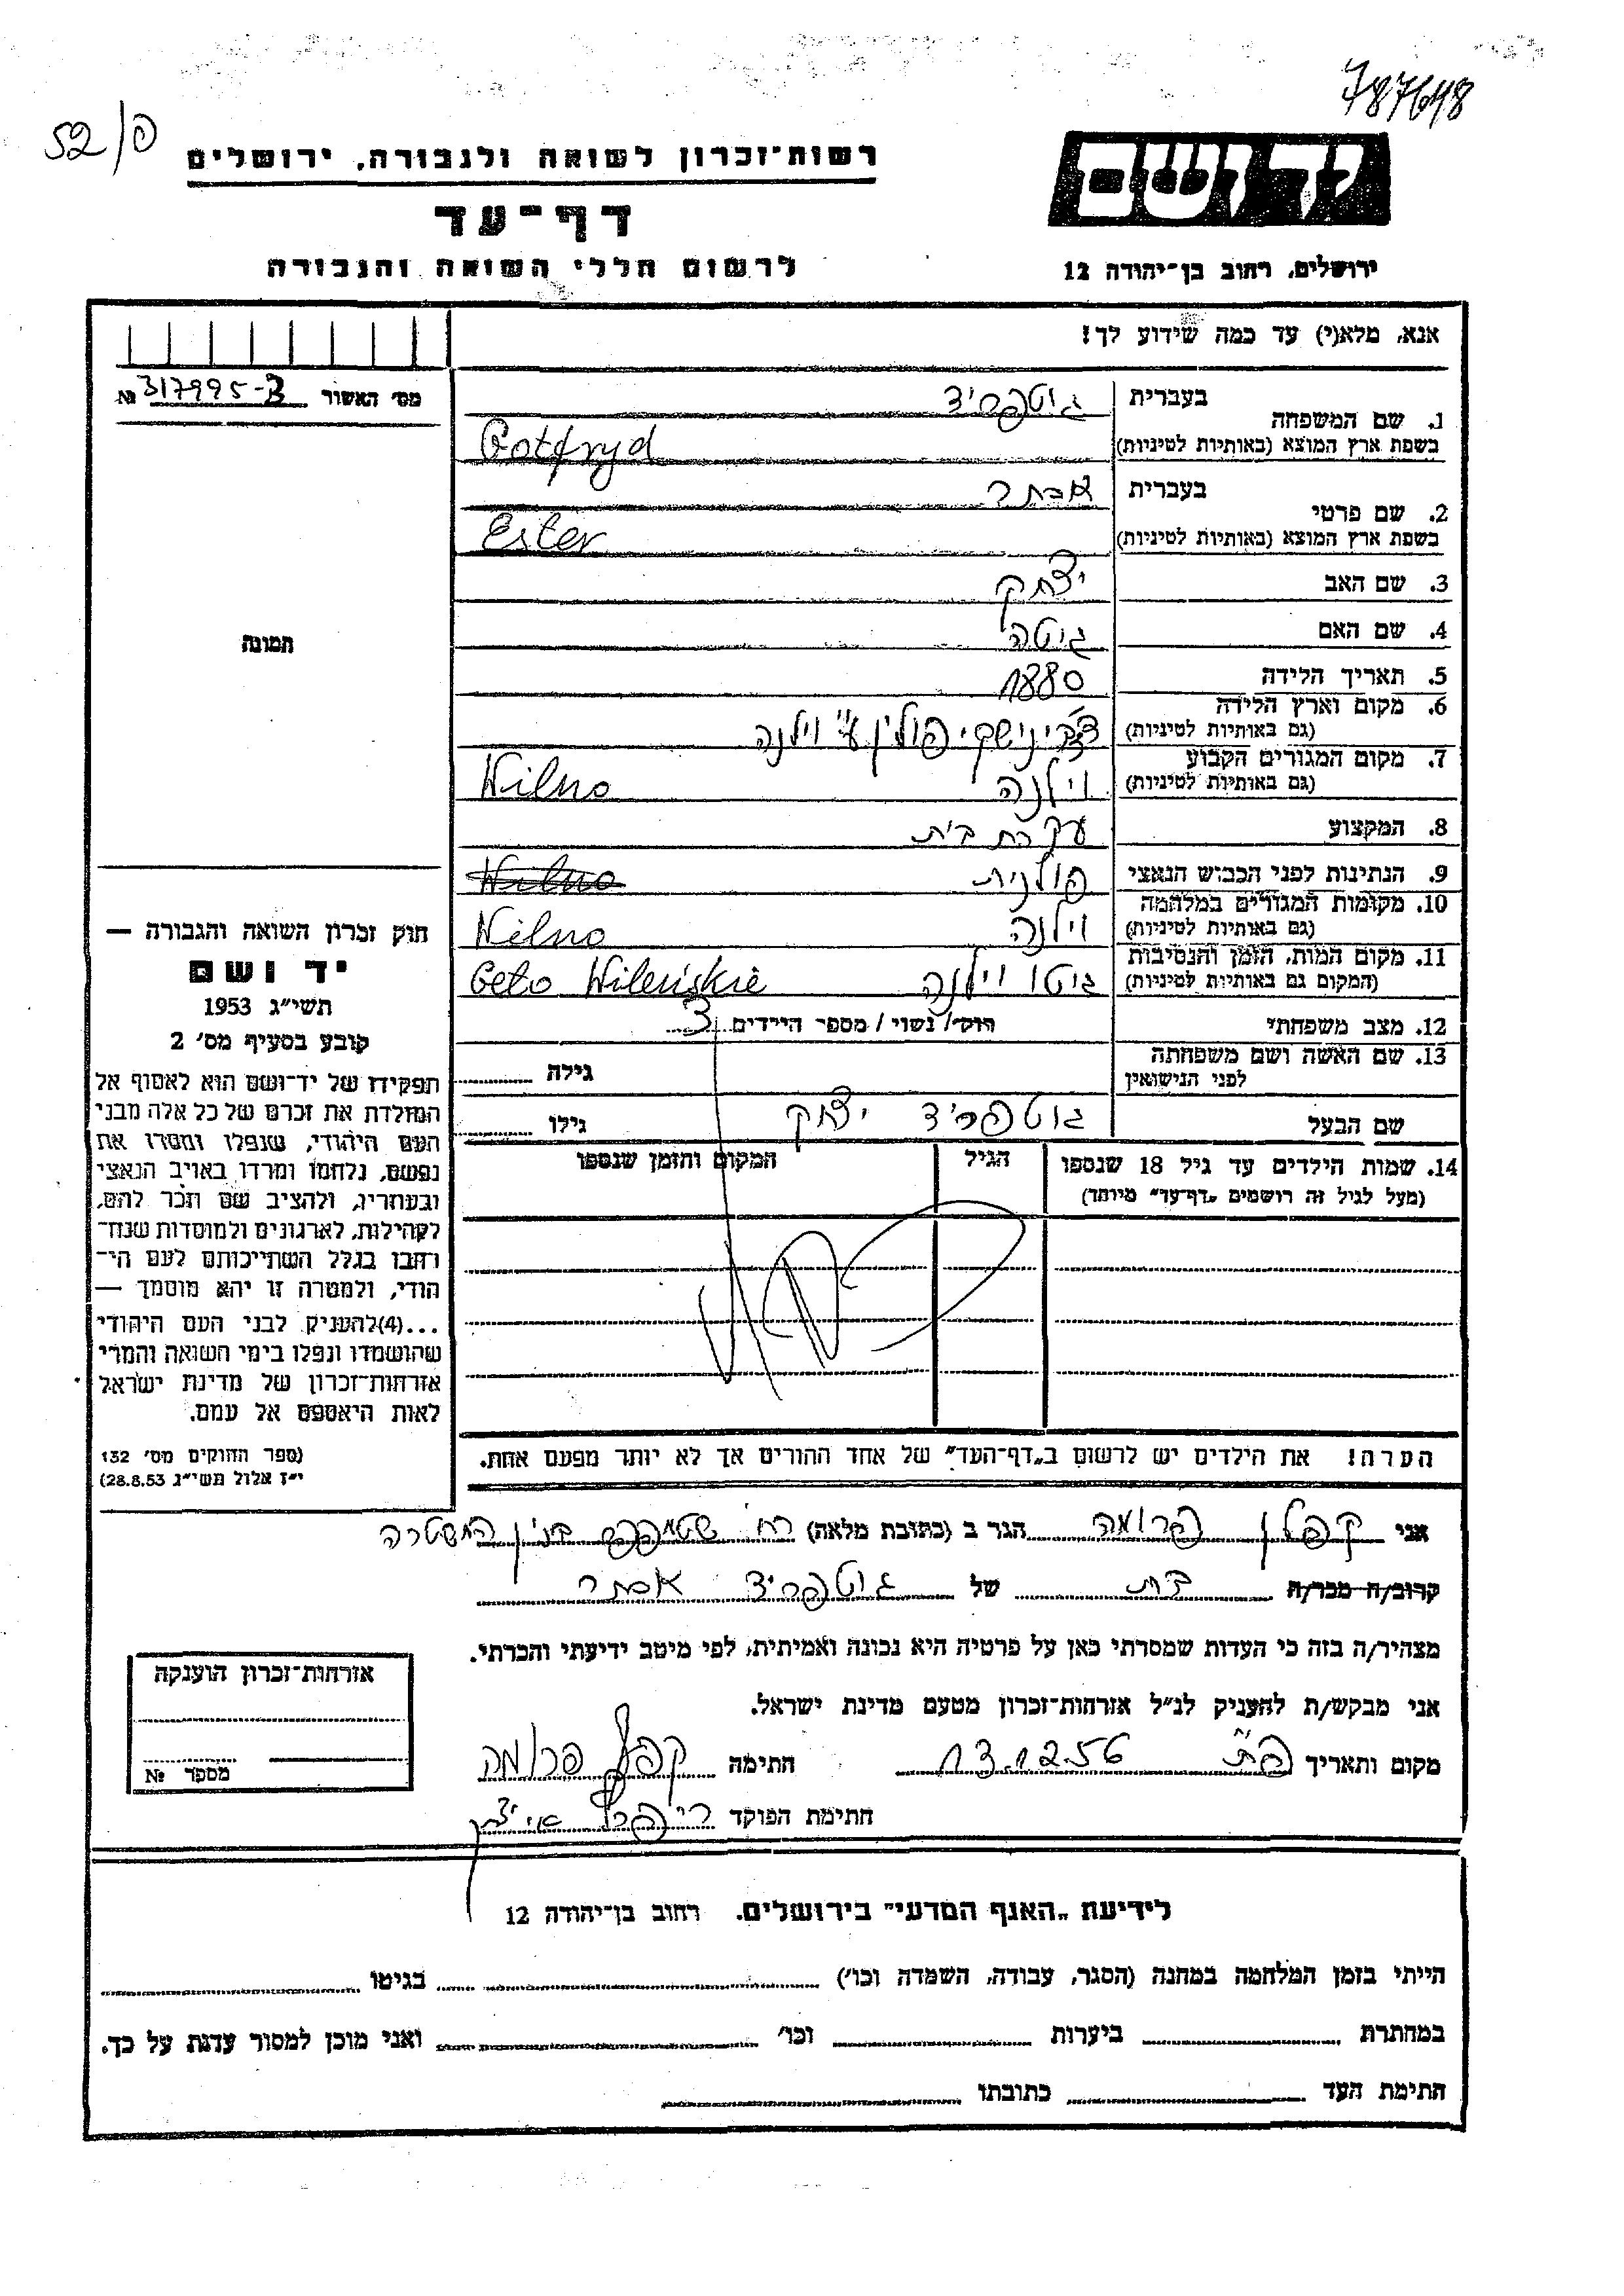 787648
52/0
רשות־זכרון לשואה ולגבורה, ירושלים
יד ושם
דף־עד
לרשום חללי השואה והגבורה
ירושלים, רחוב בן־יהודה 12
אנא, מלא(י) עד כמה שידוע לך!
מס׳ האשור 317995-B №
1. שם המשפחה בעברית גוטפריד
בשפת ארץ המוצא (באותיות לטיניות) Gotfryd
2. שם פרטי בעברית אסתר
בשפת ארץ המוצא (באותיות לטיניות) Ester
3. שם האב יצחק
4. שם האם גיטה
תמונה
5. תאריך הלידה 1880
6. מקום וארץ הלידה
(גם באותיות לטיניות) פולין ע״י וילנה
7. מקום המגורים הקבוע
(גם באותיות לטיניות) וילנה Wilno
8. המקצוע עקרת בית
9. הנתינות לפני הכבוש הנאצי פולנית Wilno
10. מקומות המגורים במלחמה
(גם באותיות לטיניות) וילנה Wilno
11. מקום המות, הזמן והנסיבות
(המקום גם באותיות לטיניות) גיטו וילנה Geto Wileńskie
12. מצב משפחתי רוק/ נשוי / מספר הילדים 3
13. שם האשה ושם משפחתה
לפני הנישואין גילה
שם הבעל גוטפריד יצחק גילו
14. שמות הילדים עד גיל 18 שנספו הגיל המקום והזמן שנספו
(מעל לגיל זה רושמים „דף־עד״ מיוחד)
חוק זכרון השואה והגבורה —
יד ושם
תשי״ג 1953
קובע בסעיף מס׳ 2
תפקידו של יד־ושם הוא לאסוף אל
המולדת את זכרם של כל אלה מבני
העם היהודי, שנפלו ומסרו את
נפשם, נלחמו ומרדו באויב הנאצי
ובעוזריו, ולהציב שם וזכר להם,
לקהילות, לארגונים ולמוסדות שנח־
רבו בגלל השתייכותם לעם הי־
הודי, ולמטרה זו יהא מוסמך —
...(4)להעניק לבני העם היהודי
שהושמדו ונפלו בימי השואה והמרי
אזרחות־זכרון של מדינת ישראל
לאות היאספם אל עמם.
(ספר החוקים מס׳ 132
י״ז אלול תשי״ג 28.8.53)
הערה! את הילדים יש לרשום ב„דף־העד״ של אחד ההורים אך לא יותר מפעם אחת.
אני קפלן פרומה הגר ב (כתובת מלאה) רח׳ שטמפפר בנין המשטרה
קרוב/ה מכר/ה בת של גוטפריד אסתר
מצהיר/ה בזה כי העדות שמסרתי כאן על פרטיה היא נכונה ואמיתית, לפי מיטב ידיעתי והכרתי.
אני מבקש/ת להעניק לנ״ל אזרחות־זכרון מטעם מדינת ישראל.
מקום ותאריך פ״ת 13.12.56 חתימה קפלן פרומה
חתימת הפוקד
אזרחות־זכרון הוענקה
מספר №
לידיעת „האגף המדעי״ בירושלים, רחוב בן־יהודה 12
הייתי בזמן המלחמה במחנה (הסגר, עבודה, השמדה וכו׳) בגיטו
במחתרת ביערות וכו׳ ואני מוכן למסור עדות על כך.
חתימת העד כתובתו